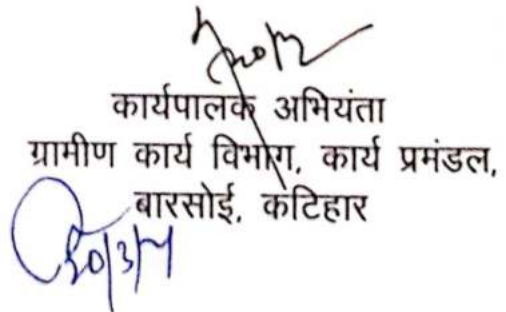 कार्यपालक अभियंता
ग्रामीण कार्य विभाग, कार्य प्रमंडल,
बारसोई, कटिहार